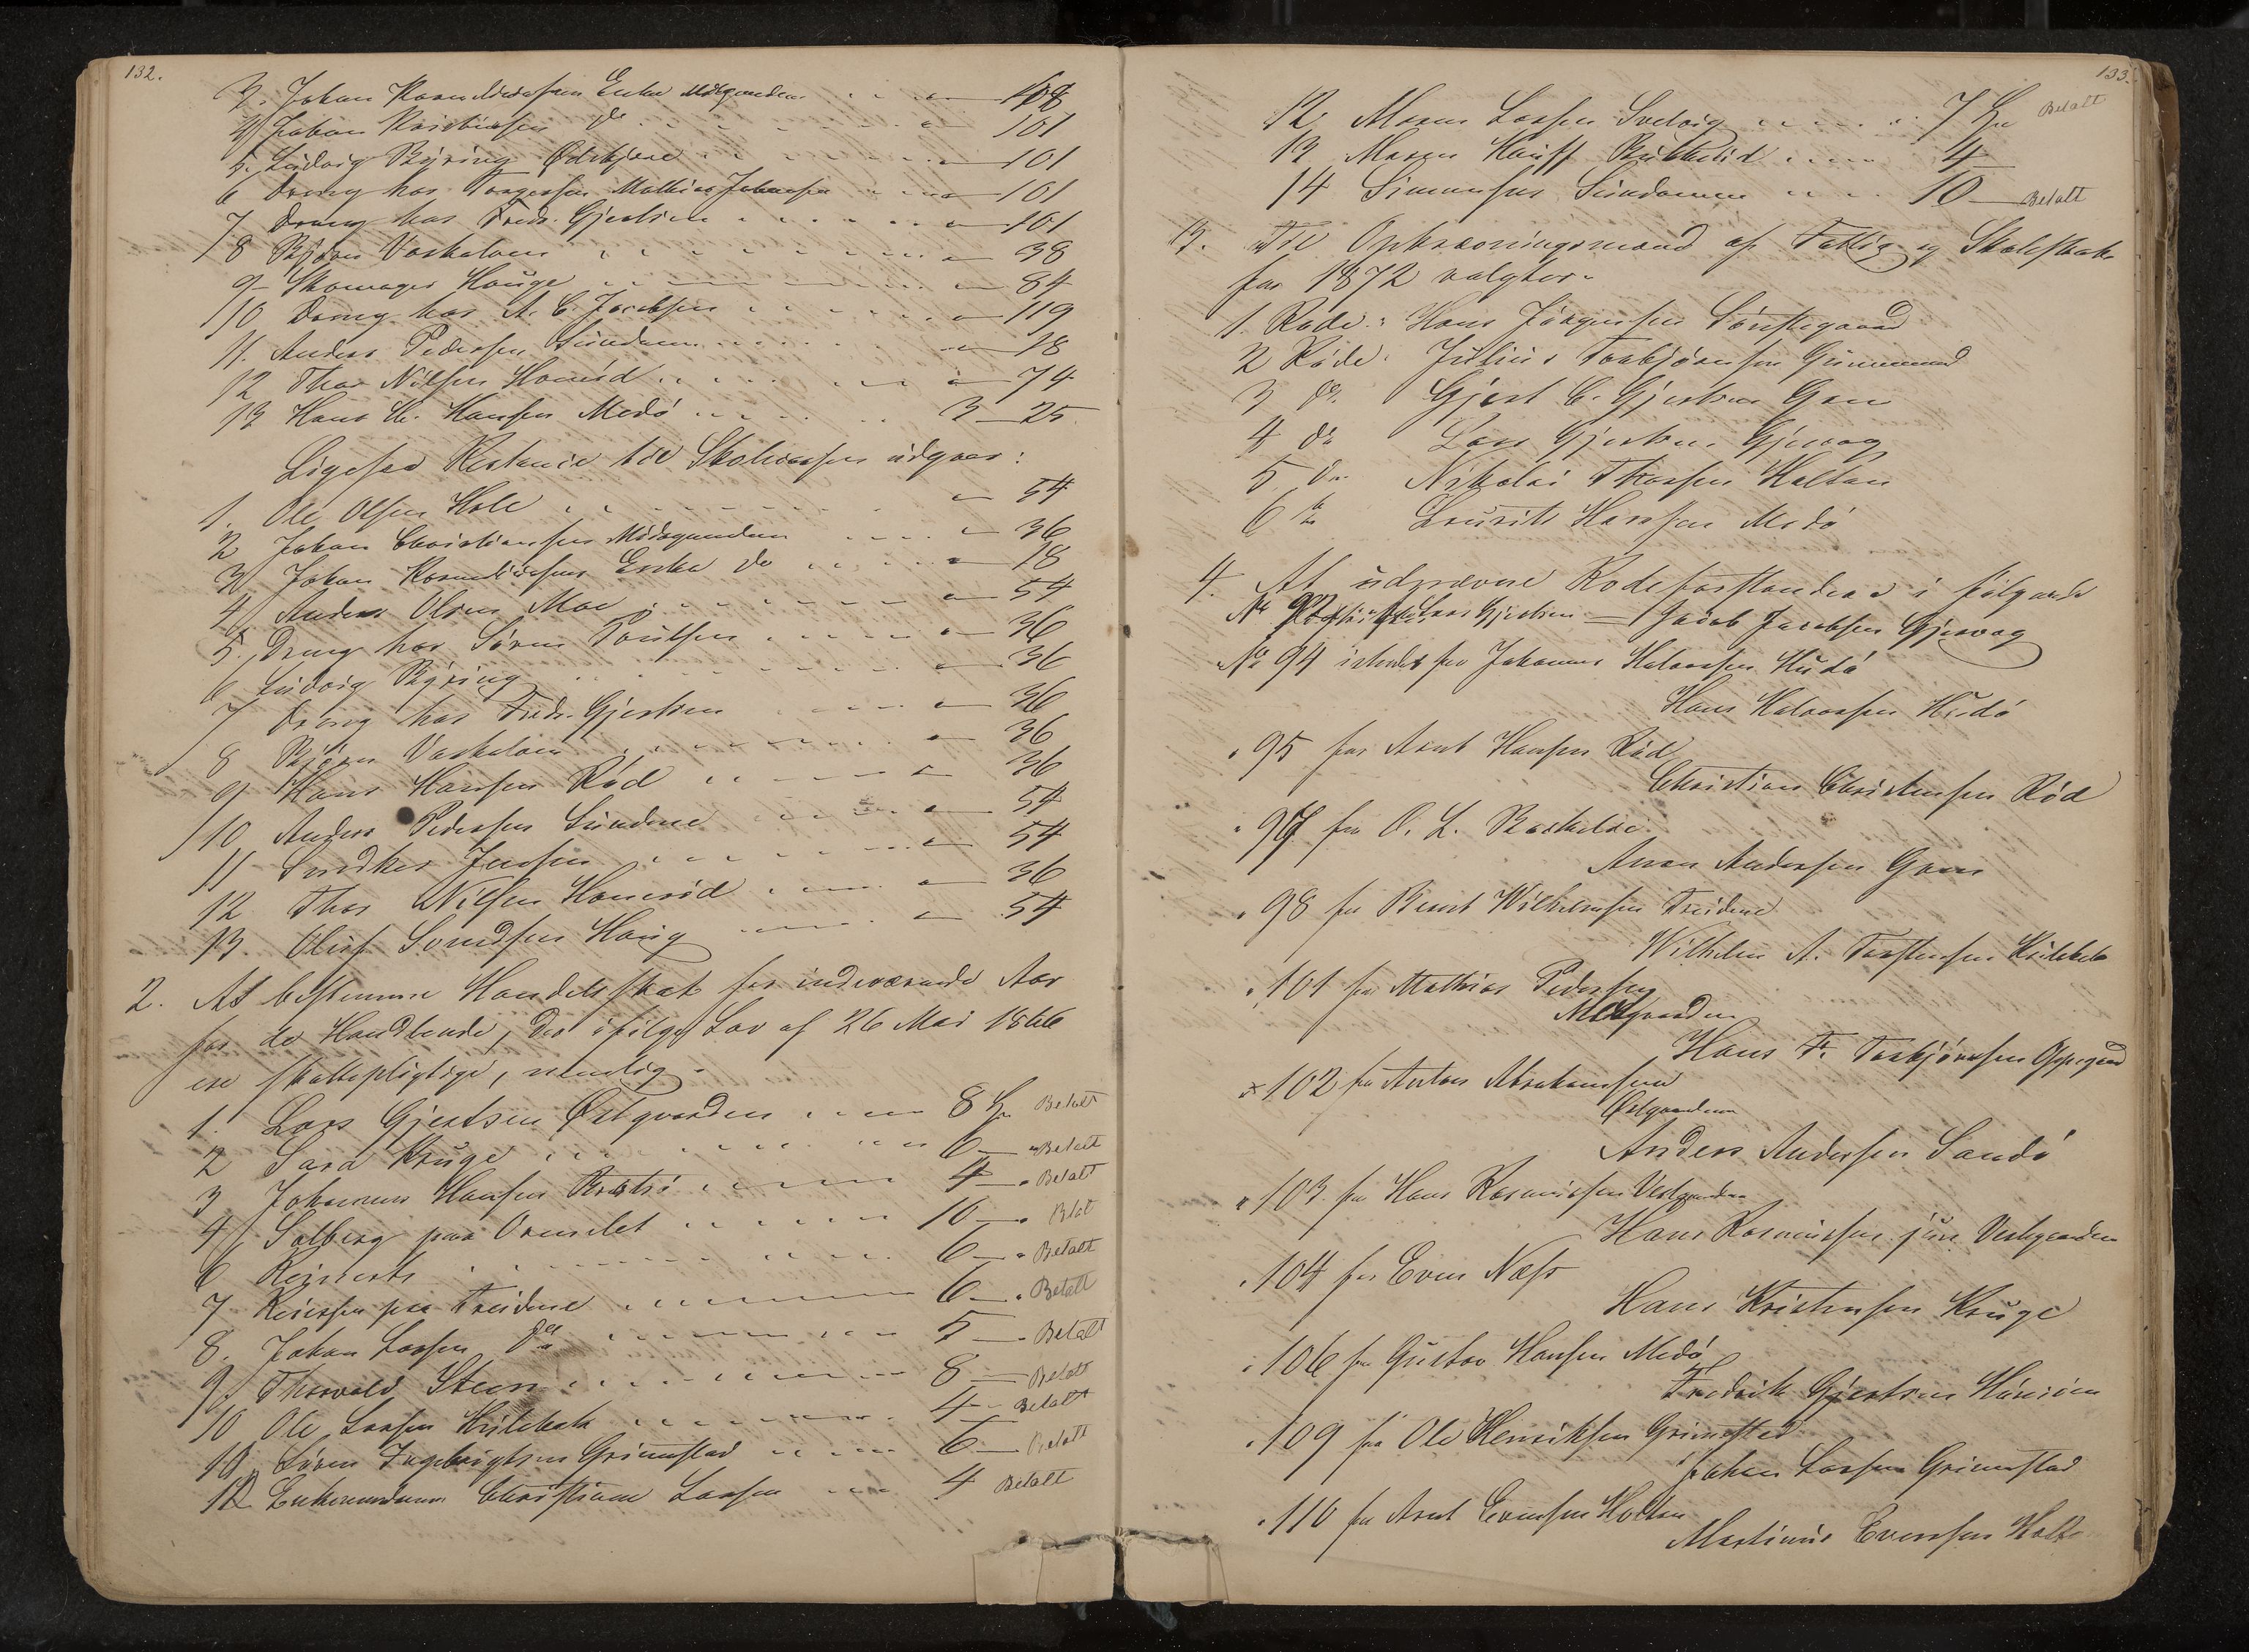 132.
3. Johan Enke 108
4 Johan Kristiansen do 101
5. Ludvig Bÿring 101
6 Dreng hos Torgersen Mathias Johansen 101
7 Dreng hos Fredr. Gjertsen 101
8 Bjørn Vaskalven 38
9 Skomager Hauge 84
10 Dreng hos A. C. Jacobsen 119
11. Anders Pedersen Sundene 18
12 Thor Nilsen 74
13 Hans Chr. Hansen Medø 3 25
Ligesaa Restancer til Skolecassen udgaar:
1. Ole Olsen Hole 54
2 Johan Christiansen Midtgaarden 36
3 Johan Enke do 18
4 Anders Olsen Moe 54
5. Dreng hos Søren Poulsen 36
6 Ludvig Bÿring 36
7 Dreng hos Fredr. Gjertsen 36
8 Bjørn Vaskalven 36
9 Hans Hansen Rød 36
10 Anders Pedersen Sundene 54
11 Snedker Jensen 54
12 Thor Nilsen 36
13. Oluf Svendsen Haug 54
2. At bestemme Handelsskat for indeværende Aar
for de Handlende, der ifølge Lov af 26 Mai 1866
ere skattepligtige, nemlig.
1. Lars Gjertsen Østgaarden 8 Betalt
2 Sara Kruge 6 Betalt
3 Johannes Hansen 4 Betalt
4 Solberg paa Ormelet 10 Btalt
6 6 Betalt
7 paa Treidene 6 Betalt
8. Johan Larsen do 5 Betalt
9 Thorvald Steen 8 Betalt
10 Ole Larsen Hulebak 4 Betalt
10 Søren Ingebrigtsen Grimestad 6 Betalt
11 Enkemadame Christiane Larsen 4 Betalt
133.
12 Larsen Svelvig 7 Betalt
13 Hauff 4
14 Simonsen Sundene 10 Betalt
3. Til Opkrævningsmænd af Fattig og Skoleskat
for 1872 valgtes.
1. Rode: Hans Jørgensen
2 Rode: Julius Torbjørnsen
3 do Gjert C. Gjertsen Gron
4 do Lars Gjertsen Gjervag
5 do Nikolai Thorsen Holtan
6 do Lauritz Hansen Medø
4. At udnævne Rodeforstandere i følgende
No Lars Gjertsen = Jacob Jacobsen Gjervag
No 94 istedet for Johannes Halvorsen Hudø
Hans Halvorsen Hudø
" 95 for Arnt Hansen Rød
Christian Christensen Rød
" 97 for O. L.
Andersen Gron
" 98 for Bernt Wilhelmsen Treidene
Wilhelm A. Torstensen Hulebak
" 101 for Mathias Pedersen
Midtgaarden
Hans F. Torbjørnsen Oppegaard
" 102 for Anton Abrahamsen
Østgaarden
Anders Andersen Sandø
" 103. for Hans Rasmussen Vestgaarden
Hans Rasmussen jun Vestgaarden
" 104 for Even Næss
Hans Kristensen Kruge
" 106 for Gustav Hansen Medø
Fredrik Gjertsen
" 109 for Ole Henriksen Grimestad
Johan Larsen Grimestad
" 110 for Arnt Evensen Holtan
Martinus Evensen